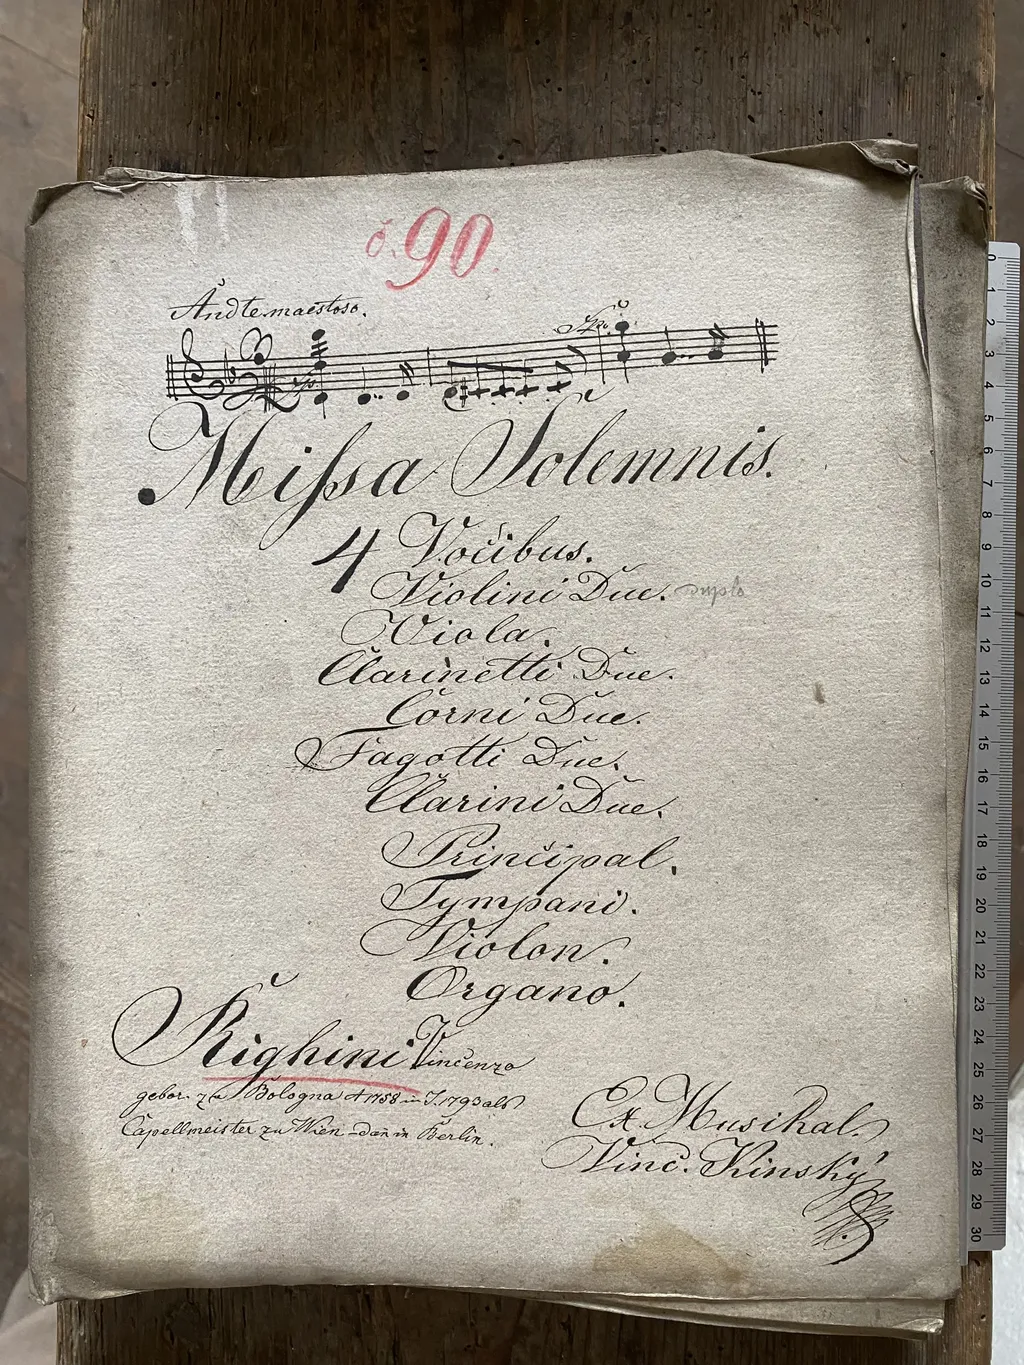 č. 90.
Andte maestoso.
Missa Solemnis.
4 Vocibus.
Violini Due. duplo
Viola.
Clarinetti Due.
Corni Due.
Fagotti Due.
Clarini Due.
Principal.
Tympani.
Violon.
Organo.
Righini Vincenzo
gebor. zu Bologna 1758 in J. 1793 als
Capellmeister zu Wien dañ in Berlin.
Ex Musikal.
Vinc. Kinský
0 1 2 3 4 5 6 7 8 9 10 11 12 13 14 15 16 17 18 19 20 21 22 23 24 25 26 27 28 29 30